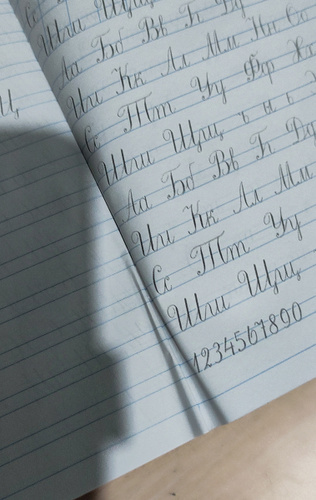 Шш Щщ
Аа Бб Вв Гг
Ии Кк Лл Мм Нн Оо
Сс Тт Уу Фф Хх
Шш Щщ ъ ы ь
Аа Бб Вв Гг Дд
Ии Кк Лл Мм
Сс Тт Уу
Шш Щщ
1234567890